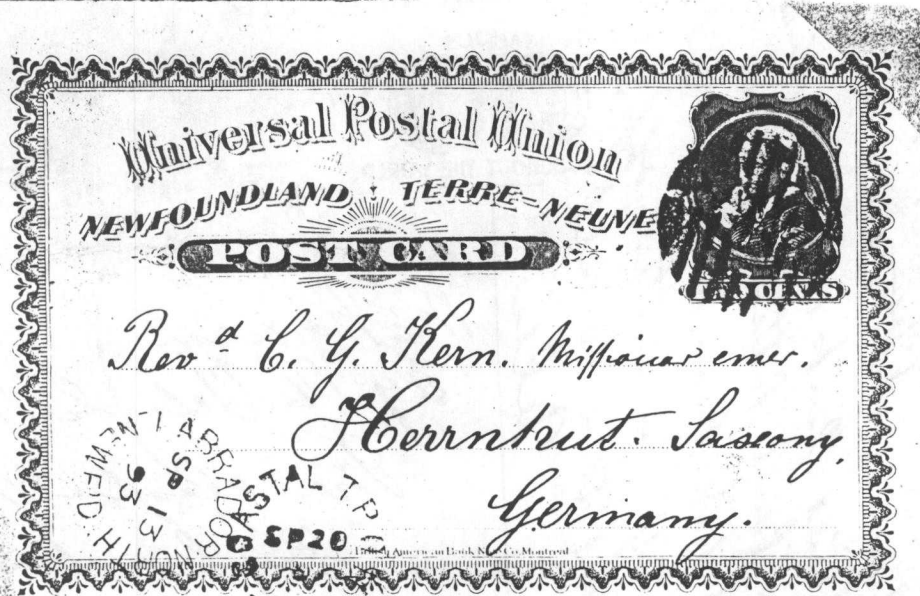 Universal Postal Union
NEWFOUNDLAND TERRE-NEUVE
POST CARD
TWO CENTS
Revd C. G. Kern. Missionar emer.
Herrnhut. Saxony,
Germany.
LABRADOR NORTH
NEWF'D
SP 13
93
COASTAL T.P.O.
SP 20
British American Bank Note Co. Montreal